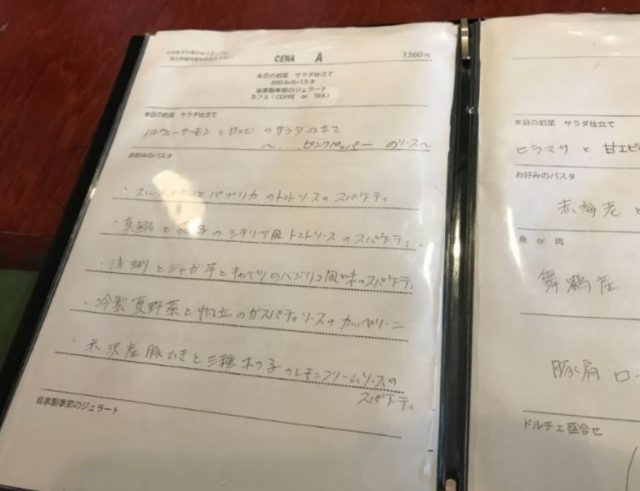 CENA A 1360円
本日の前菜 サラダ仕立て
お好みのパスタ
自家製季節のジェラート
カフェ(COFFE or TEA)
本日の前菜 サラダ仕立て
ノルウェーサーモンと甘エビのサラダ仕立て
～ ピンクペッパーのソース～
お好みのパスタ
・スルメイカとパプリカのトマトソースのスパゲティ
・真鯛と茄子のシチリア風トマトソースのスパゲティ
・浅蜊とジャガ芋とキャベツのバジリコ風味のスパゲティ
・冷製夏野菜と帆立のガスパチョソースのカッペリーニ
・米沢産豚 と三種木の子のレモンクリームソースの
スパゲティ
自家製季節のジェラート
本日の前菜 サラダ仕立て
ヒラマサと甘エビ
お好みのパスタ
赤海老と
魚 or 肉
舞鶴産
豚肩ロー
ドルチェ盛合せ